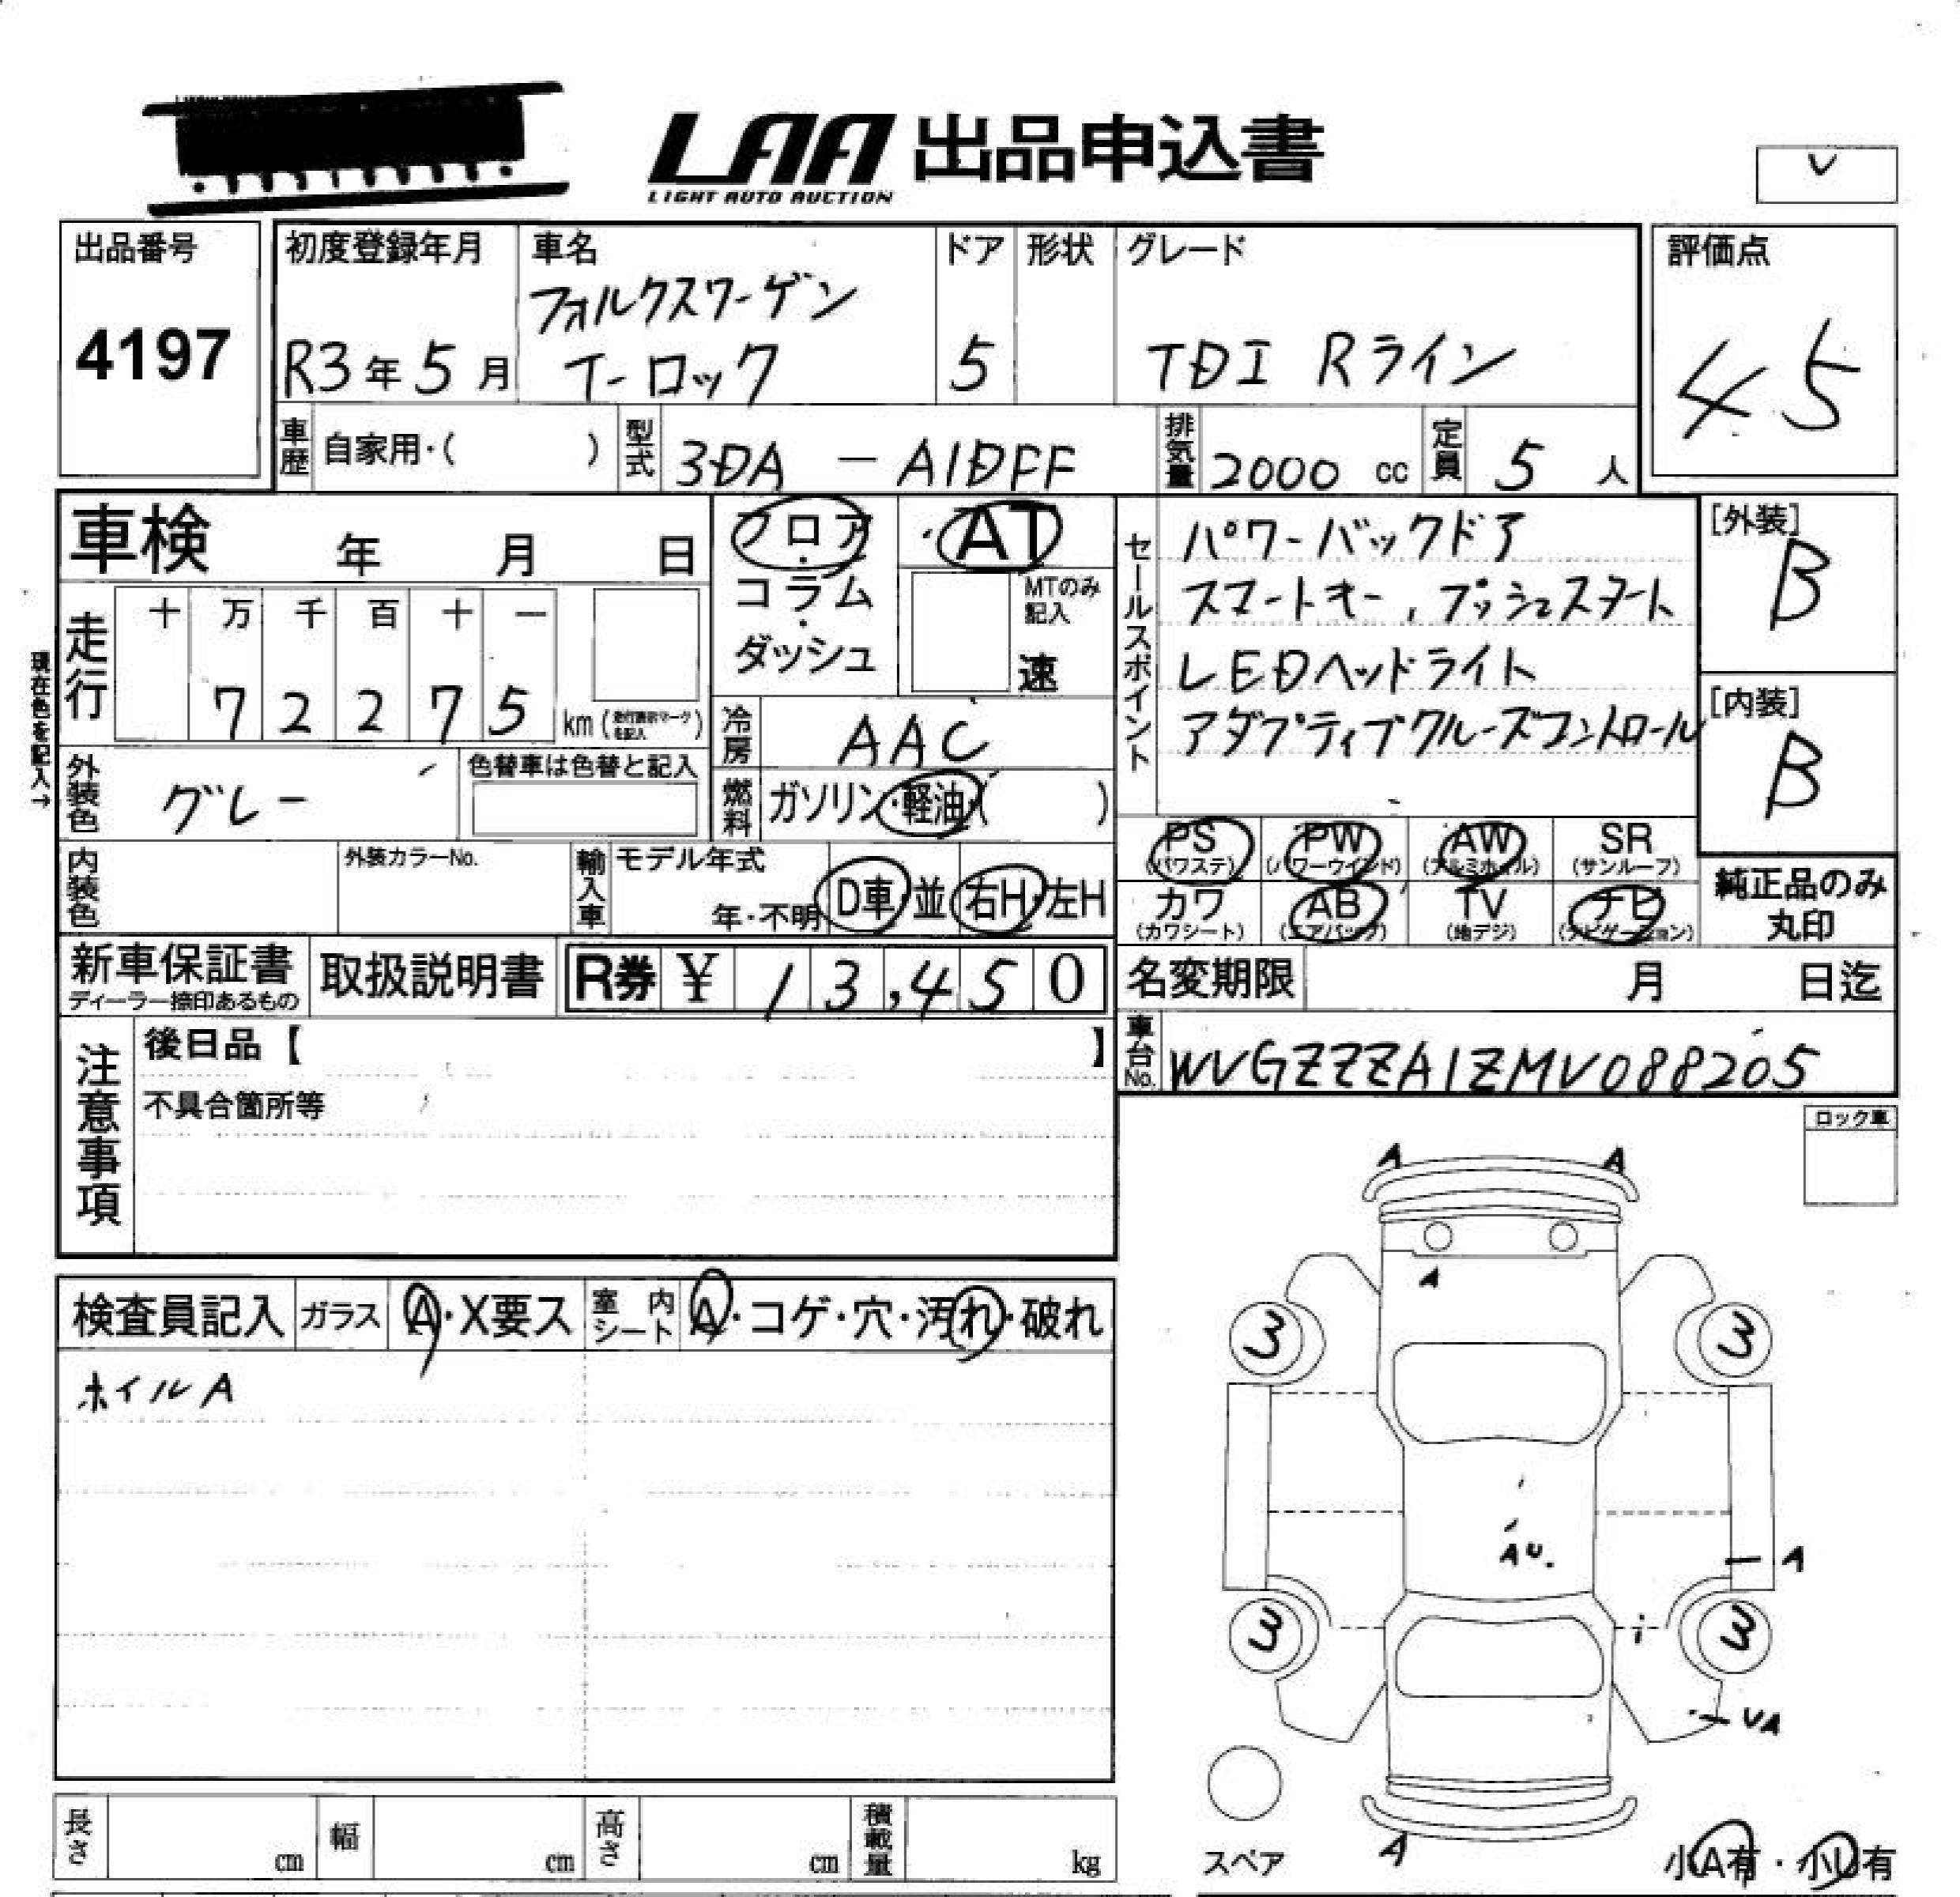 LAA 出品申込書
LIGHT AUTO AUCTION
出品番号
4197
初度登録年月
R3年5月
車名
フォルクスワーゲン
T-ロック
ドア
5
形状
グレード
TDI Rライン
評価点
4.5
車歴 自家用・( )
型式 3DA － A1DFF
排気量 2000 cc
定員 5 人
車検 年 月 日
フロア・コラム・ダッシュ
AT
MTのみ記入
速
セールスポイント
パワーバックドア
スマートキー, プッシュスタート
LEDヘッドライト
アダプティブクルーズコントロール
[外装]
B
[内装]
B
現在色を記入→
走行 十 万 千 百 十 一
7 2 2 7 5 km (走行表示マークを記入)
冷房 AAC
外装色 グレー
色替車は色替と記入
燃料 ガソリン・軽油・( )
PS (パワステ)
PW (パワーウインド)
AW (アルミホイル)
SR (サンルーフ)
カワ (カワシート)
AB (エアバック)
TV (地デジ)
ナビ (ナビゲーション)
純正品のみ
丸印
内装色
外装カラーNo.
輸入車
モデル年式
年・不明
D車・並
右H・左H
新車保証書
ディーラー捺印あるもの
取扱説明書
R券 ¥ 13,450
名変期限 月 日迄
車台No. WVGZZZA1ZMV088205
注意事項
後日品【 】
不具合箇所等
ロック車
検査員記入
ガラス A・X要ス
室内シート A・コゲ・穴・汚れ・破れ
ホイルA
A A
A
3 3
AU.
A
3 3
UA
A
スペア
小A有・小U有
長さ cm
幅 cm
高さ cm
積載量 kg